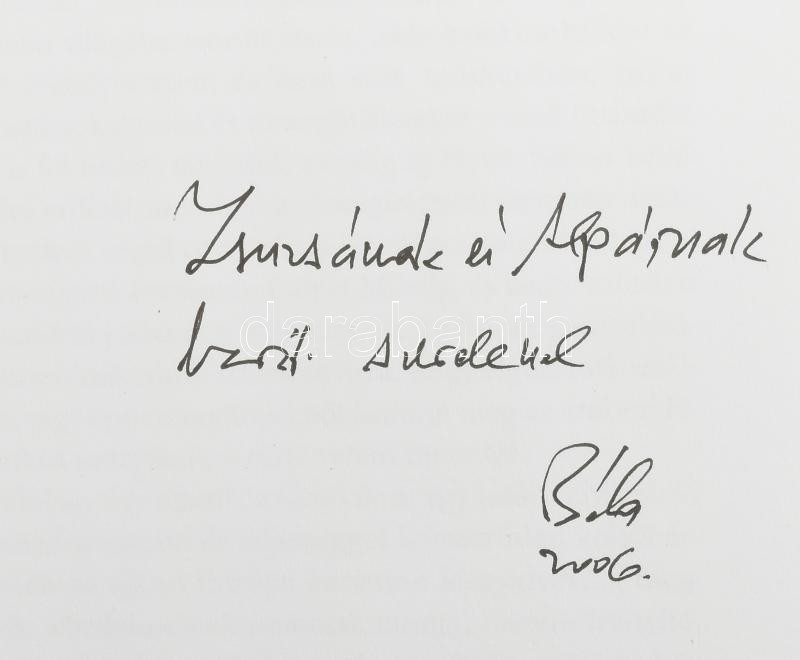 Zsuzsának és Alpárnak
baráti szeretettel
Béla
2006.
darabanth